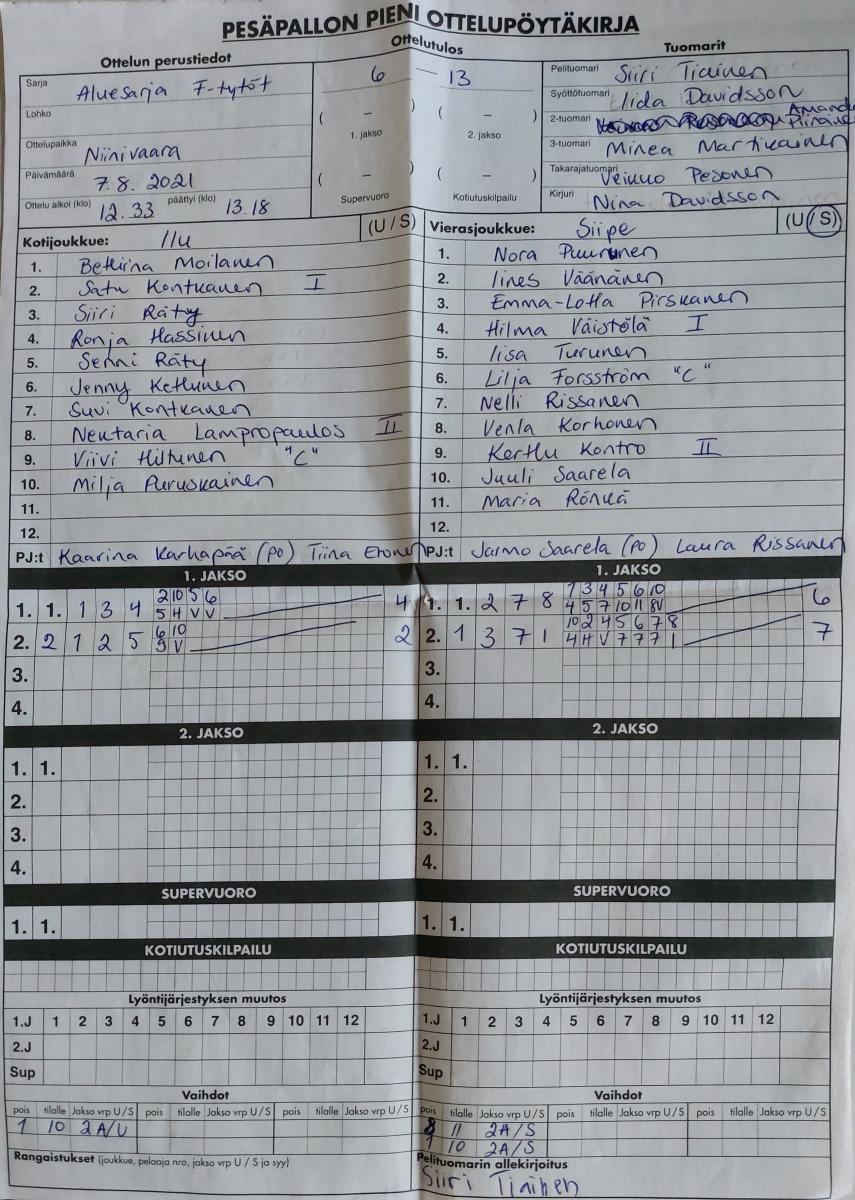 PESÄPALLON PIENI OTTELUPÖYTÄKIRJA
Ottelun perustiedot
Ottelutulos
Tuomarit
Sarja Aluesarja F-tytöt
Lohko
Ottelupaikka Niinivaara
Päivämäärä 7.8.2021
Ottelu alkoi (klo) 12.33 päättyi (klo) 13.18
6 — 13
( – ) ( – )
1. jakso 2. jakso
( – ) ( – )
Supervuoro Kotiutuskilpailu
Pelituomari Siiri Tiainen
Syöttötuomari Iida Davidsson
2-tuomari Amanda Piirainen
3-tuomari Minea Martikainen
Takarajatuomari Veikko Pesonen
Kirjuri Nina Davidsson
Kotijoukkue: Ilu (U/S)
1. Bettiina Moilanen
2. Satu Kontkanen I
3. Siiri Räty
4. Ronja Hassinen
5. Senni Räty
6. Jenny Kettunen
7. Suvi Kontkanen
8. Nektaria Lampropoulos II
9. Viivi Hiltunen "C"
10. Milja Puruskainen
11.
12.
PJ:t Kaarina Karhapää (PO) Tiina Eronen
Vierasjoukkue: Siipe (U/S)
1. Nora Puurunen
2. Iines Väänänen
3. Emma-Lotta Pirskanen
4. Hilma Väistölä I
5. Iisa Turunen
6. Lilja Forsström "C"
7. Nelli Rissanen
8. Venla Korhonen
9. Kerttu Kontro II
10. Juuli Saarela
11. Maria Rönkä
12.
PJ:t Jarmo Saarela (PO) Laura Rissanen
1. JAKSO
2 10 5 6
1. 1. 1 3 4 5 H V V 4
6 10
2. 2 1 2 5 9 V 2
3.
4.
1. JAKSO
1 3 4 5 6 10
1. 1. 2 7 8 4 5 7 10 11 8V 6
10 2 4 5 6 7 8
2. 1 3 7 1 4 H V 7 7 7 1 7
3.
4.
2. JAKSO
1. 1.
2.
3.
4.
2. JAKSO
1. 1.
2.
3.
4.
SUPERVUORO
1. 1.
SUPERVUORO
1. 1.
KOTIUTUSKILPAILU
KOTIUTUSKILPAILU
Lyöntijärjestyksen muutos
1.J 1 2 3 4 5 6 7 8 9 10 11 12
2.J
Sup
Lyöntijärjestyksen muutos
1.J 1 2 3 4 5 6 7 8 9 10 11 12
2.J
Sup
Vaihdot
pois tilalle Jakso vrp U/S pois tilalle Jakso vrp U/S pois tilalle Jakso vrp U/S
1 10 2A/U
Vaihdot
pois tilalle Jakso vrp U/S pois tilalle Jakso vrp U/S pois tilalle Jakso vrp U/S
8 11 2A/S
1 10 2A/S
Rangaistukset (joukkue, pelaaja nro, jakso vrp U / S ja syy)
Pelituomarin allekirjoitus
Siiri Tiainen